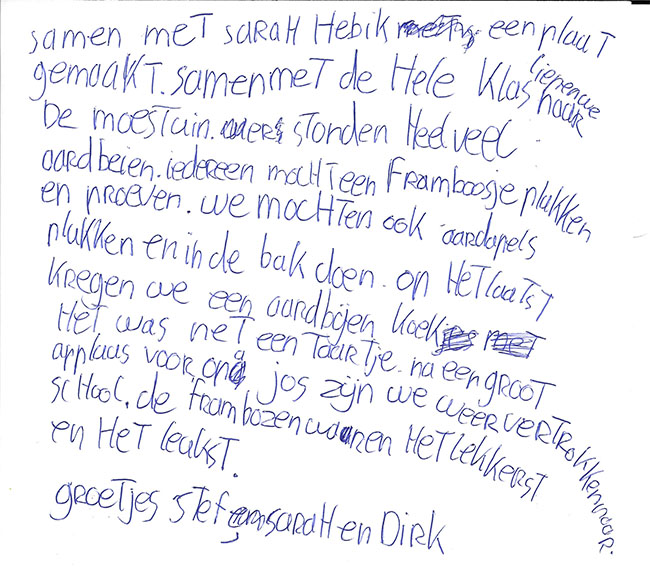 samen meT saRaH Hebik een plaaT
gemaakT. samen meT de Hele Klas liepen we naar
De moesTuin. er stonden Heel veel
aardbeien. iedereen mochT een Framboosje plukken
en pRoeven. we mochTen ook aardapels
plukken en in de bak doen. op HeT laaTsT
KRegen we een aardbijen koek
HeT was neT een TaaRTje. na een gRooT
applaus voor opa jos zijn we weeR veRTRokken naar.
scHool. de fRambozen waren HeT lekkeRsT
en HeT leuksT.
gRoeTjes sTef saRaH en DiRk